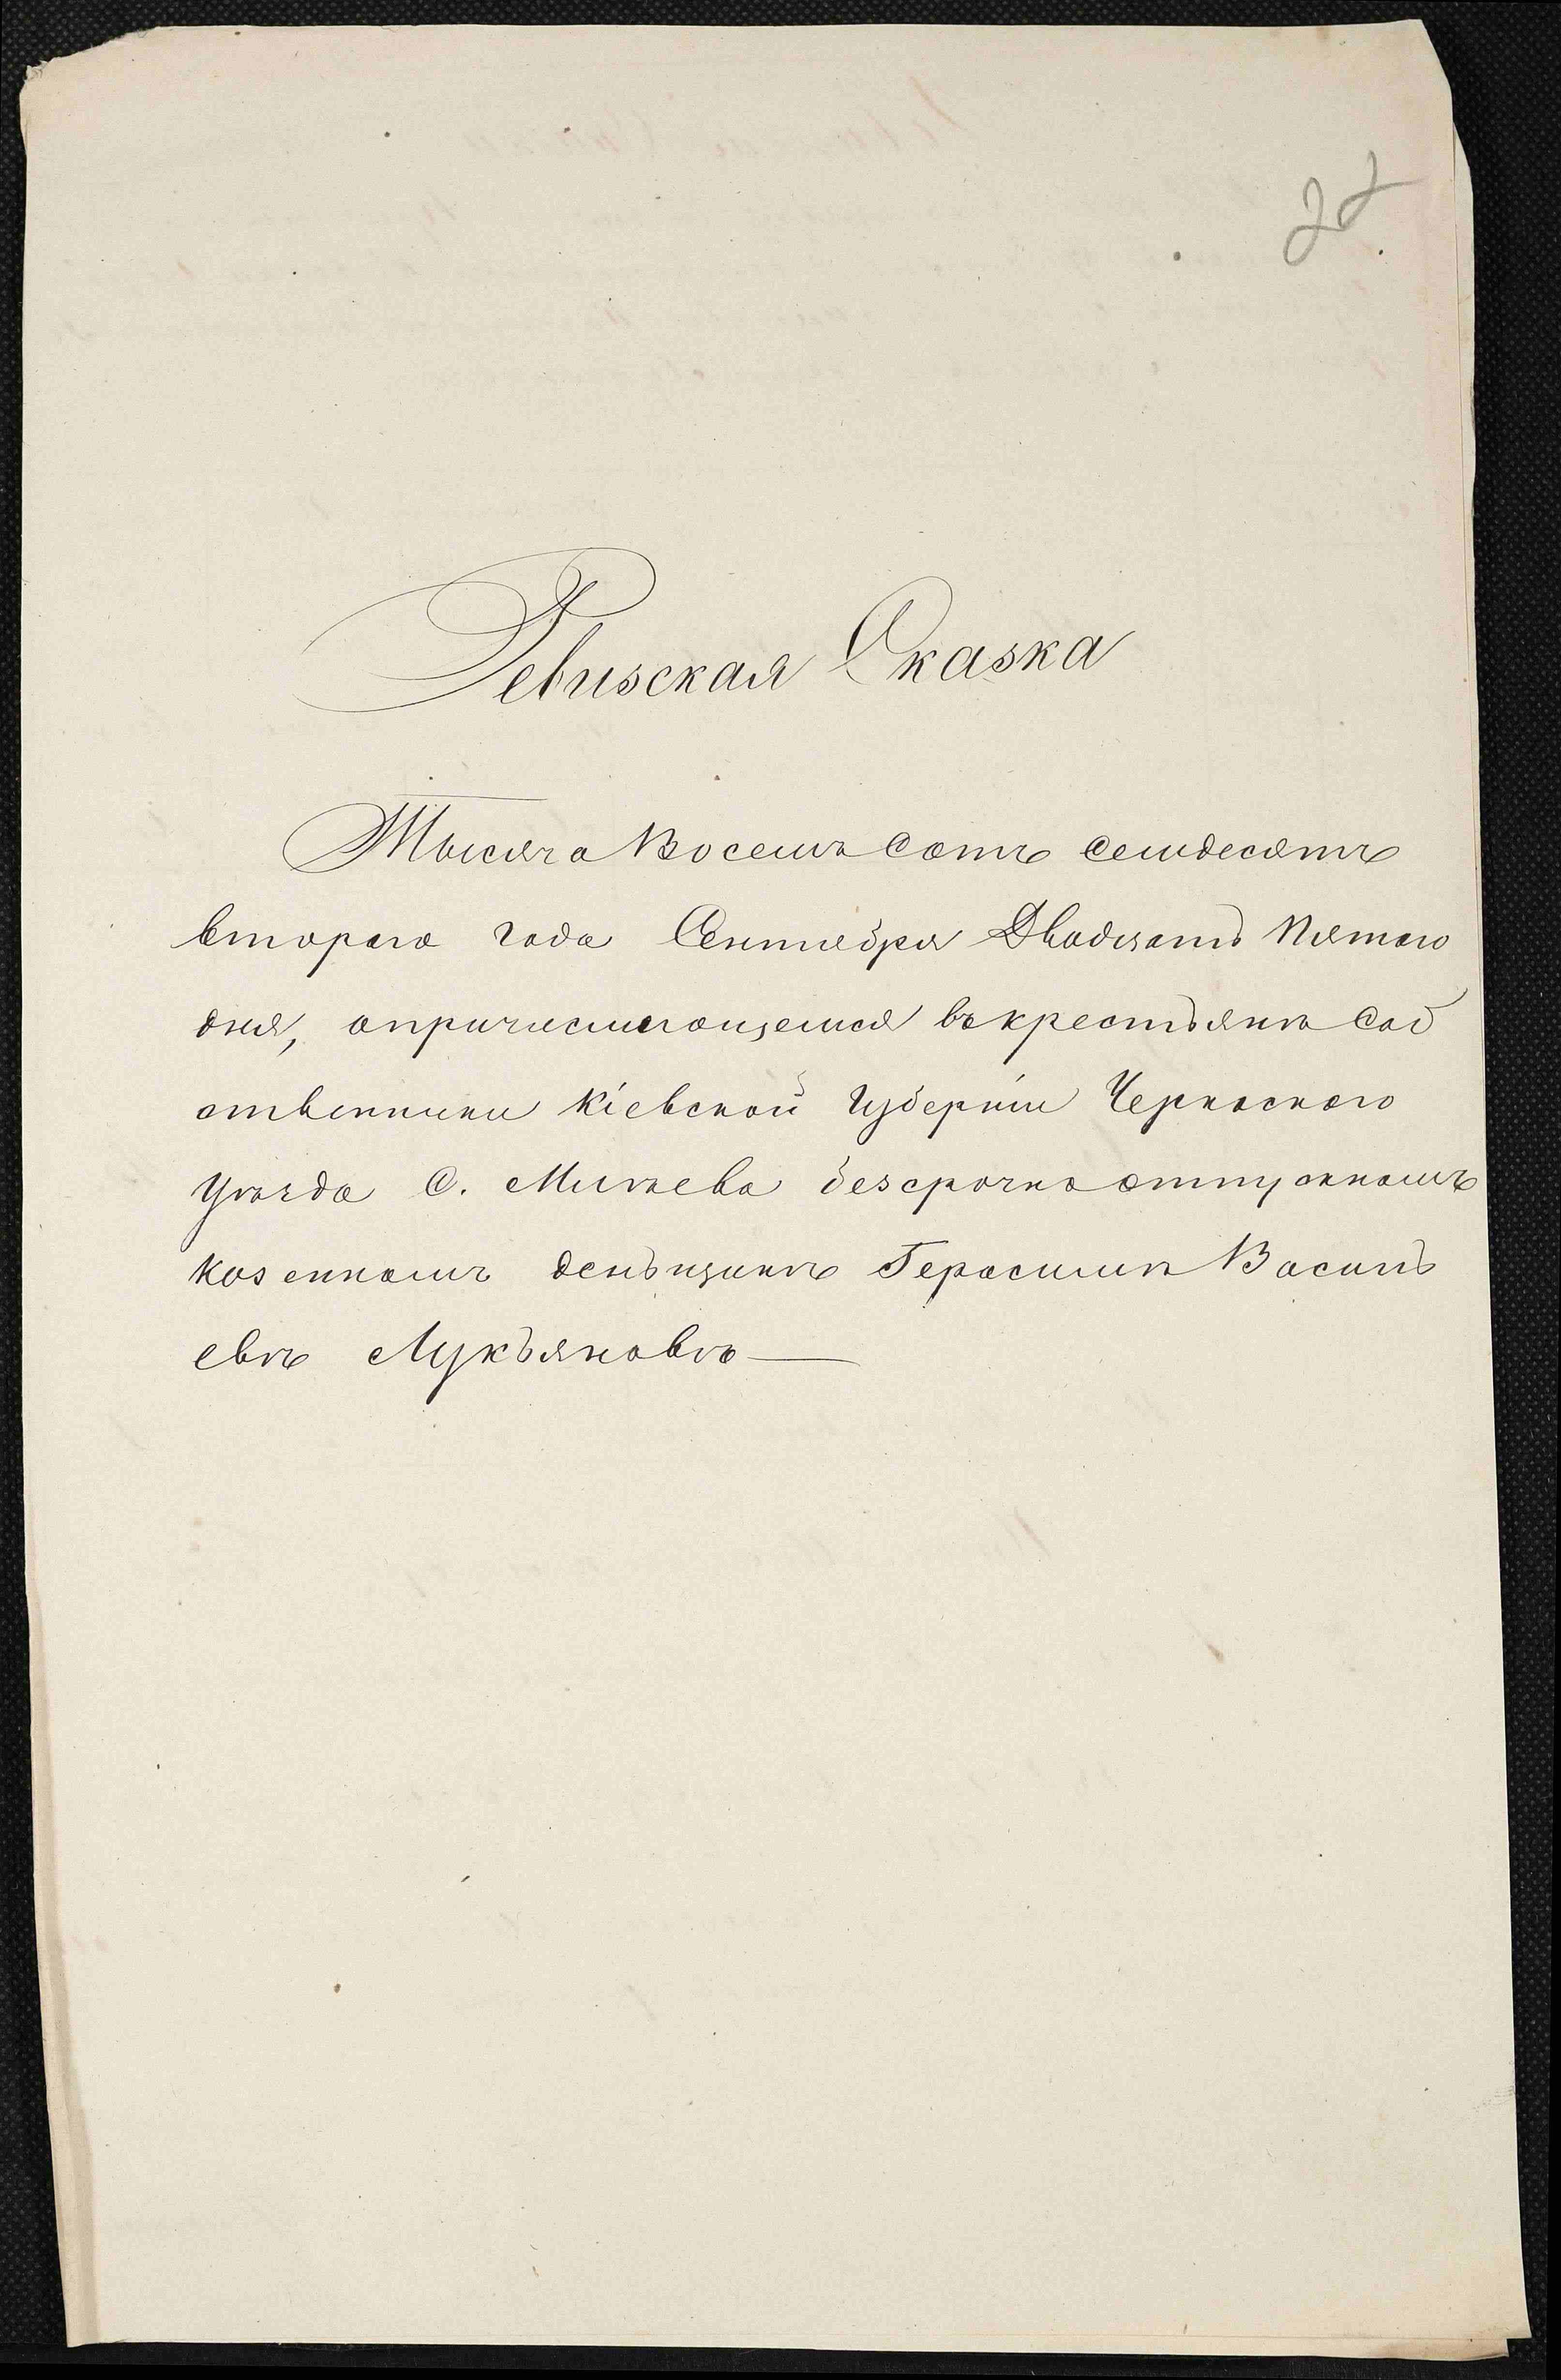 22
Ревизская Сказка
Тысяча Восемъ Сотъ Семдесятъ
втораго года Сентября Двадцать Пятаго
дня, опричисляющемся въ крестьянъ Соб
ственники Кіевской Губерніи Черкаскаго
Уѣзда С. Милѣева безсрочно отпускномъ
козенномъ деньщикѣ Герасимѣ Василь
евѣ Лукьяновѣ —